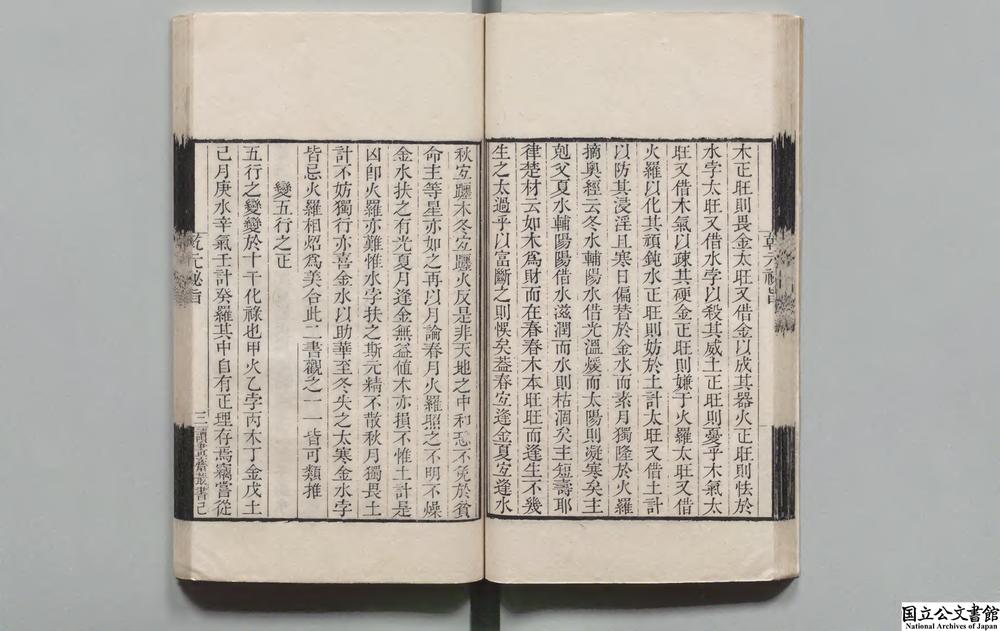 木正旺則畏金太旺又借金以成其器火正旺則怯於
水孛太旺又借水孛以殺其威土正旺則憂乎木氣太
旺又借木氣以疎其硬金正旺則嫌于火羅太旺又借
火羅以化其頑鈍水正旺則妨於土計太旺又借土計
以防其浸淫且寒日偏替於金水而素月獨隆於火羅
摘奥經云冬水輔陽水借光溫煖而太陽則凝寒矣主
剋父夏水輔陽陽借水滋潤而水則枯涸矣主短壽耶
律楚材云如木爲財而在春春木本旺旺而逢生不幾
生之太過乎以富斷之則悞矣葢春宐逢金夏宐逢水
秋宐躔木冬宐躔火反是非天地之中和恐不免於貧
命主等星亦如之再以月論春月火羅照之不明不燥
金水扶之有光夏月逢金無益値木亦損不惟土計是
凶卽火羅亦難惟水孛扶之斯元精不散秋月獨畏土
計不妨獨行亦喜金水以助華至冬失之太寒金水孛
皆忌火羅相炤爲美合此二書觀之一一皆可類推
變五行之正
五行之變變於十干化祿也甲火乙孛丙木丁金戊土
己月庚水辛氣壬計癸羅其中自有正理存焉竊嘗從
乾元秘旨
三
讀書齋叢書己
乾元秘旨
国立公文書館
National Archives of Japan